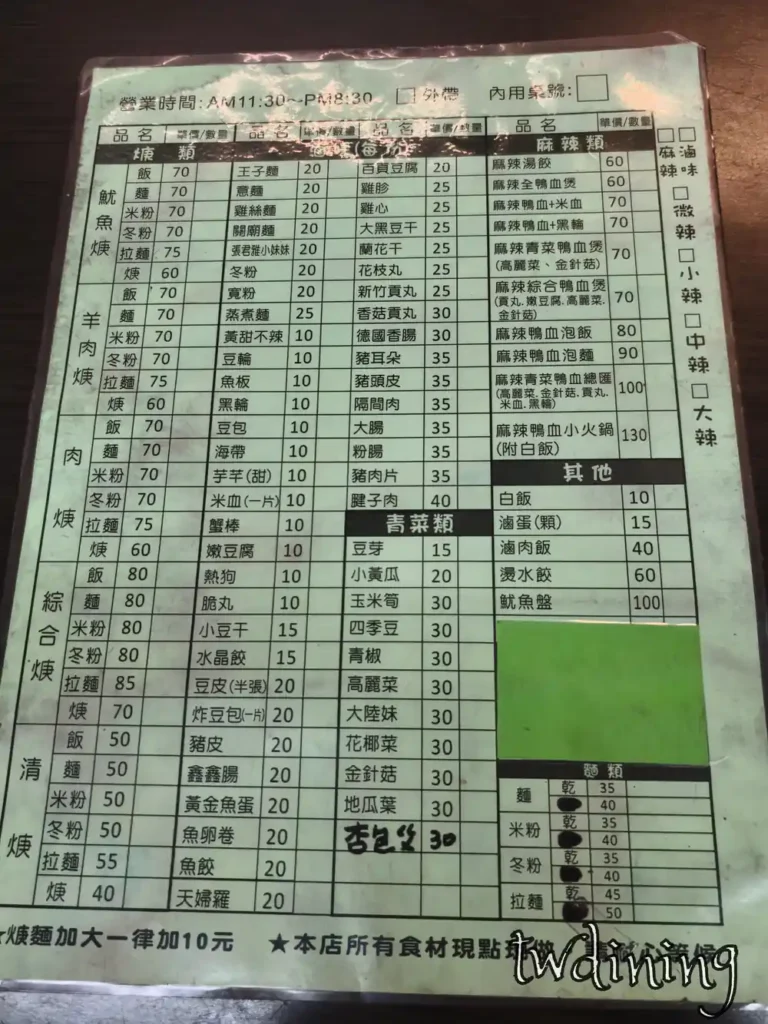 營業時間:AM11:30~PM8:30 □外帶 內用桌號:□
品名 單價/數量 品名 單價/數量 品名 單價/數量 品名 單價/數量
焿類
魷魚焿
飯 70
麵 70
米粉 70
冬粉 70
拉麵 75
焿 60
羊肉焿
飯 70
麵 70
米粉 70
冬粉 70
拉麵 75
焿 60
肉焿
飯 70
麵 70
米粉 70
冬粉 70
拉麵 75
焿 60
綜合焿
飯 80
麵 80
米粉 80
冬粉 80
拉麵 85
焿 70
清焿
飯 50
麵 50
米粉 50
冬粉 50
拉麵 55
焿 40
王子麵 20
意麵 20
雞絲麵 20
關廟麵 20
張君雅小妹妹 20
冬粉 20
寬粉 20
蒸煮麵 25
黃甜不辣 10
豆輪 10
魚板 10
黑輪 10
豆包 10
海帶 10
芋芊(甜) 10
米血(一片) 10
蟹棒 10
嫩豆腐 10
熱狗 10
脆丸 10
小豆干 15
水晶餃 15
豆皮(半張) 20
炸豆包(一片) 20
豬皮 20
鑫鑫腸 20
黃金魚蛋 20
魚卵卷 20
魚餃 20
天婦羅 20
百頁豆腐 20
雞胗 25
雞心 25
大黑豆干 25
蘭花干 25
花枝丸 25
新竹貢丸 25
香菇貢丸 30
德國香腸 30
豬耳朵 35
豬頭皮 35
隔間肉 35
大腸 35
粉腸 35
豬肉片 35
腱子肉 40
青菜類
豆芽 15
小黃瓜 20
玉米筍 30
四季豆 30
青椒 30
高麗菜 30
大陸妹 30
花椰菜 30
金針菇 30
地瓜葉 30
杏包 30
麻辣類
麻辣湯餃 60
麻辣全鴨血煲 60
麻辣鴨血+米血 70
麻辣鴨血+黑輪 70
麻辣青菜鴨血煲 70
(高麗菜、金針菇)
麻辣綜合鴨血煲 70
(貢丸.嫩豆腐.高麗菜.
金針菇)
麻辣鴨血泡飯 80
麻辣鴨血泡麵 90
麻辣青菜鴨血總匯 100
(高麗菜.金針菇.貢丸.
米血.黑輪)
麻辣鴨血小火鍋 130
(附白飯)
其他
白飯 10
滷蛋(顆) 15
滷肉飯 40
燙水餃 60
魷魚盤 100
麵類
麵 乾 35
40
米粉 乾 35
40
冬粉 乾 35
40
拉麵 乾 45
50
□麻辣 □滷味
□微辣
□小辣
□中辣
□大辣
★焿麵加大一律加10元 ★本店所有食材現點現做
twdining